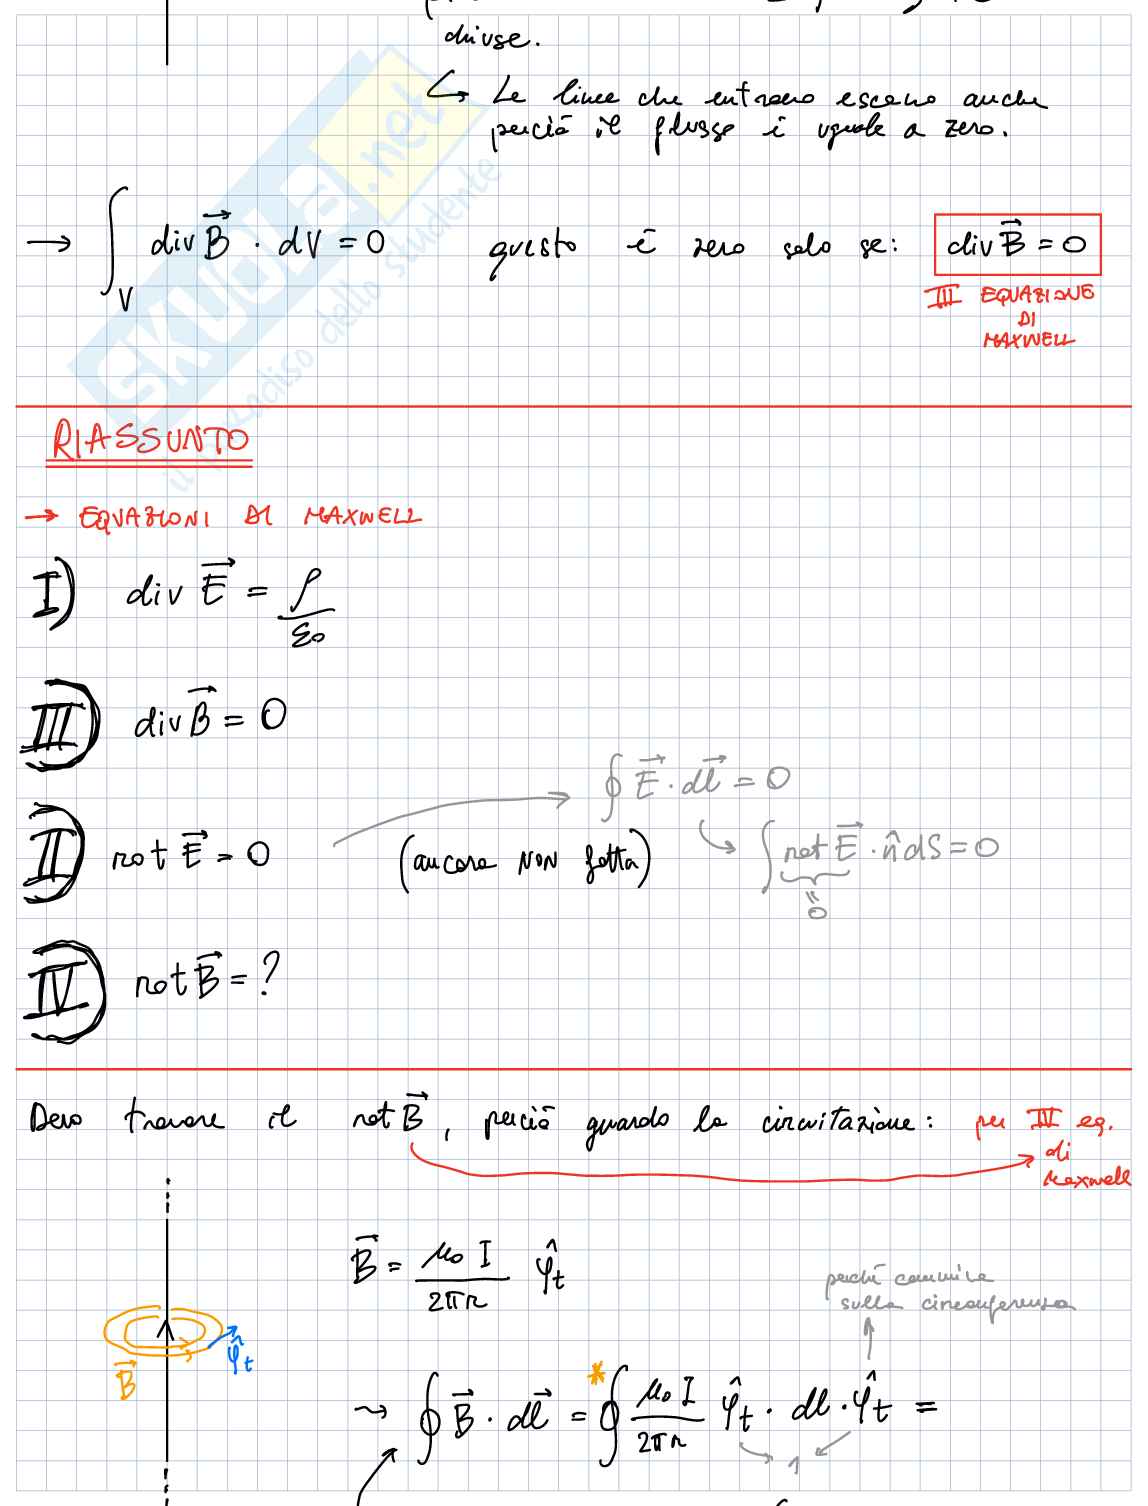 chiuse.
↳ Le linee che entrano escono anche
perciò il flusso è uguale a zero.
→ ∫_V div B⃗ · dV = 0 questo è zero solo se: div B⃗ = 0
III EQUAZIONE
DI
MAXWELL
SKUOLA.net
il paradiso dello studente
RIASSUNTO
→ EQUAZIONI DI MAXWELL
I) div E⃗ = ρ/ε₀
III) div B⃗ = 0
∮ E⃗ · dl⃗ = 0
II) rot E⃗ = 0 (ancora NON fatta) ∫ rot E⃗ · n̂ dS = 0
= 0
IV) rot B⃗ = ?
Devo trovare il rot B⃗, perciò guardo la circuitazione: per III eq.
di
Maxwell
B⃗ = μ₀ I / 2πr φ̂t
perché cammino
sulla circonferenza
B⃗ φ̂t
⇝ ∮ B⃗ · dl⃗ = * ∮ μ₀ I / 2πr φ̂t · dl · φ̂t =
1